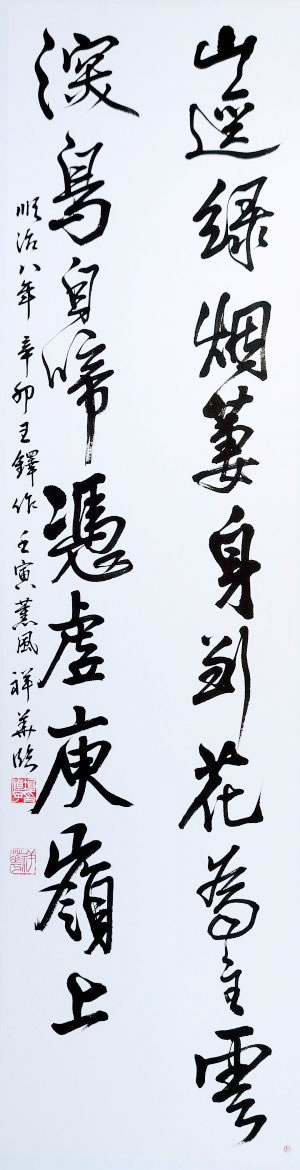 山逕綠烟萋身到花為主雲
深鳥自啼憑虛庾嶺上
順治八年辛卯王鐸作壬寅薰風祥華臨